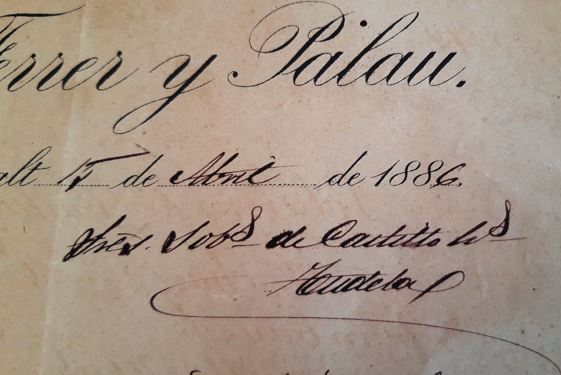 Ferrer y Palau.
alt 15 de Abril de 1886.
Sres. Sobs de Castillo Hs
Tudela